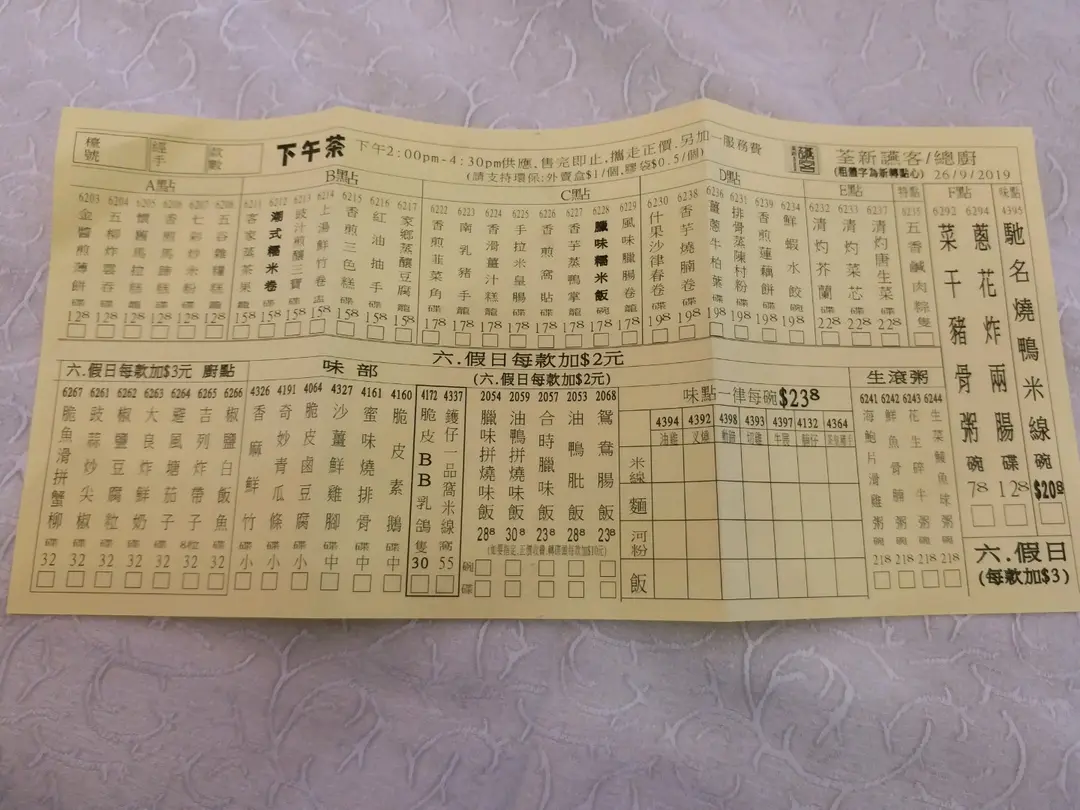 檯號
經手
款數
下午茶
下午2:00pm-4:30pm供應,售完即止,攜走正價.另加一服務費
(請支持環保:外賣盒$1/個,膠袋$0.5/個)
荃新讌客/總廚
(粗體字為新轉點心) 26/9/2019
A點
6203 金醬煎薄餅 碟 12⁸
6204 五柳炸雲吞 碟 12⁸
6206 懷舊馬拉糕 碟 12⁸
6205 香煎馬蹄糕 碟 12⁸
6207 七彩炒米粉 碟 12⁸
6208 五谷雜糧 12⁸
B點
6211 客家茶粿 15⁸
6212 潮式糯米卷 碟 15⁸
6213 豉汁煎釀三寶 碟 15⁸
6214 上湯鮮竹卷 15⁸
6215 香煎三色糕 碟 15⁸
6216 紅油抽手 碟 15⁸
6217 家鄉蒸釀豆腐 籠 15⁸
C點
6222 香煎韮菜角 碟 17⁸
6223 南乳豬手 碟 17⁸
6224 香滑薑汁糕 籠 17⁸
6225 手拉米皇腸 碟 17⁸
6226 香煎窩貼 碟 17⁸
6227 香芋蒸鴨掌 籠 17⁸
6228 臘味糯米飯 碗 17⁸
6229 風味臘腸卷 籠 17⁸
D點
6230 什果沙津春卷 碟 19⁸
6238 香芋燒腩卷 碟 19⁸
6236 薑蔥牛柏葉 碟 19⁸
6231 排骨蒸陳村粉 碟 19⁸
6239 香煎蓮藕餅 碟 19⁸
6234 鮮蝦水餃 碗 19⁸
E點
6232 清灼芥蘭 碟 22⁸
6253 清灼菜芯 碟 22⁸
6237 清灼唐生菜 碟 22⁸
特點
6235 五香鹹肉粽 隻
F點
6292 菜干豬骨粥 碗 7⁸
6294 蔥花炸兩腸 碟 12⁸
味點
4395 馳名燒鴨米線 碗 $20⁸
六.假日每款加$2元
六.假日每款加$3元 廚點
6267 脆魚滑拼蟹柳 碟 32
6261 豉蒜炒尖椒 碟 32
6262 椒鹽豆腐粒 碟 32
6263 大良炸鮮奶 碟 32
6264 避風塘炸茄子 碟 32
6265 吉列炸帶子 32
6266 椒鹽白飯魚 碟 32
味部
4326 香麻鮮竹 碟 小
4191 奇妙青瓜條 碟 小
4064 脆皮鹵豆腐 碟 小
4327 沙薑鮮雞腳 碟 中
4161 蜜味燒排骨 碟 中
4160 脆皮素鵝 碟 中
(六.假日每款加$2元)
4172 脆皮BB乳鴿 隻 30
4337 鑊仔一品窩米線 窩 55
2054 臘味拼燒味飯 28⁸
2059 油鴨拼燒味飯 30⁸
2060 合時臘味飯 23⁸
2053 油鴨肶飯 28⁸
2068 鴛鴦腸飯 23⁸
碗
碟
味點一律每碗$23⁸
4394 油雞
4392 叉燒
4398
4393 切雞
4397
4132
4364
米線
麵
河粉
飯
生滾粥
6241 海鮑片滑雞粥 碗 21⁸
6242 鮮魚骨腩粥 碗 21⁸
6243 花生碎牛粥 碗 21⁸
6244 生菜鯪魚球粥 碗 21⁸
六.假日
(每款加$3)